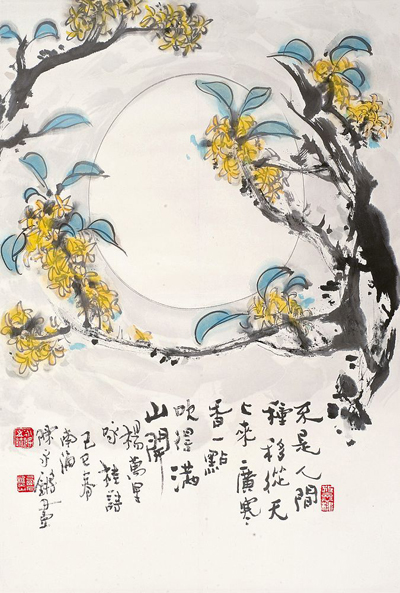 不是人間
種移從天
上來廣寒
香一點
吹得滿
山開
楊萬里
咏桂語
己巳春
南海
陳永鏘